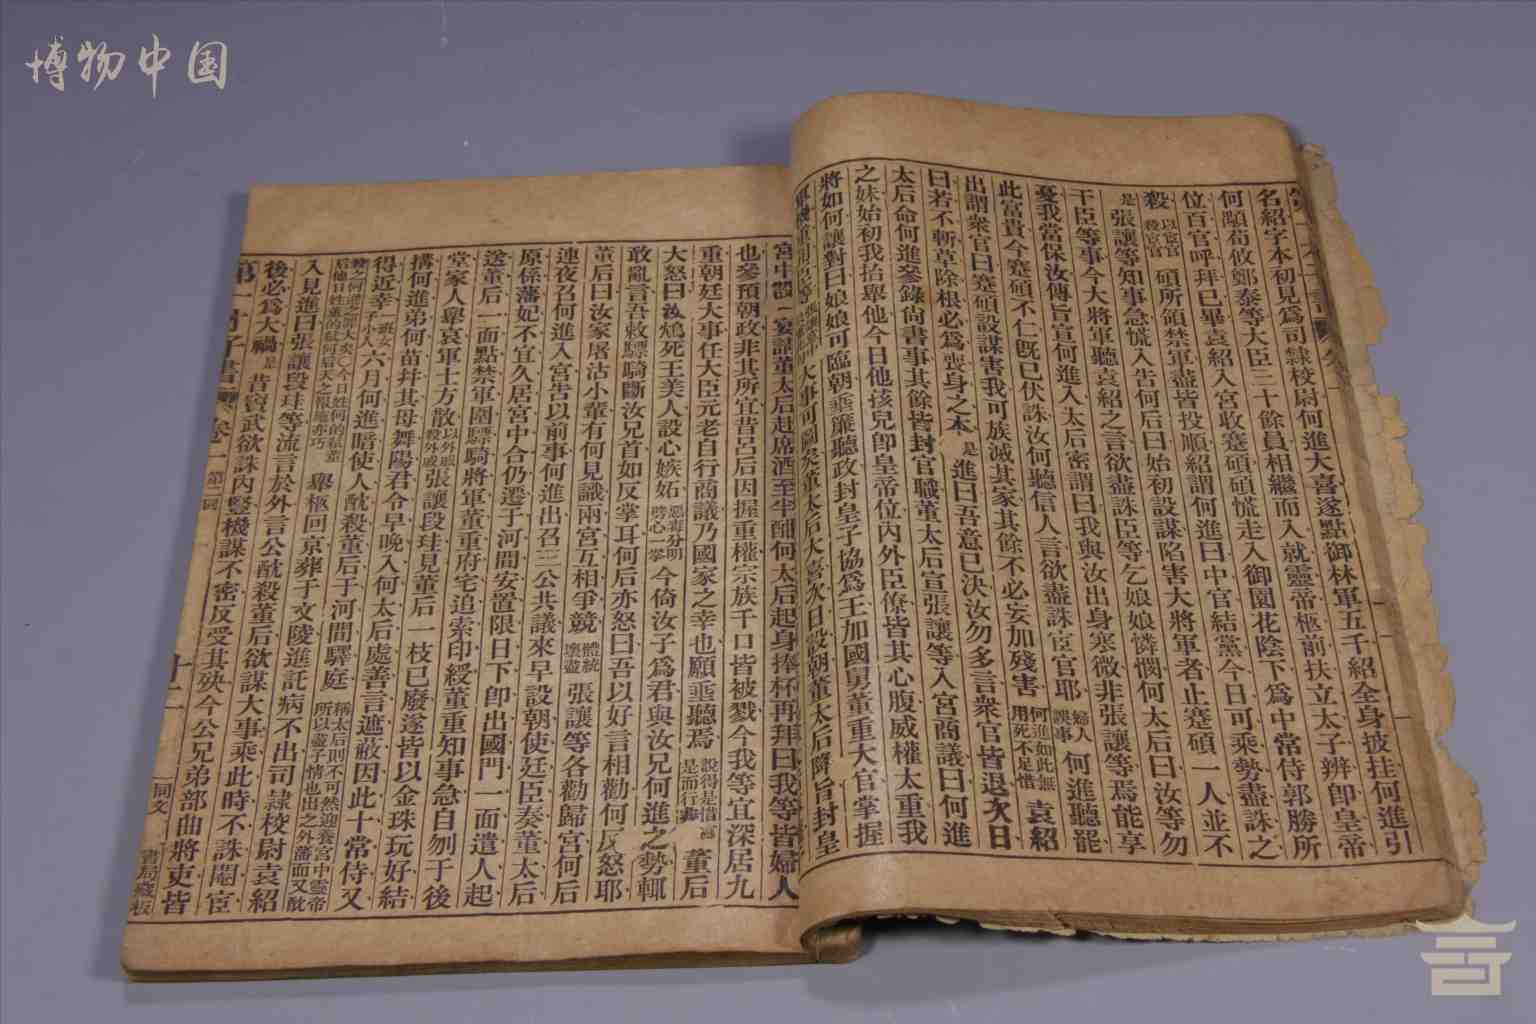 博物中国
名紹字本初見為司隸校尉何進大喜遂點御林軍五千紹全身披挂何進引
何顒荀攸鄭泰等大臣三十餘員相繼而入就靈帝柩前扶立太子辨卽皇帝
位百官呼拜已畢袁紹入宮收蹇碩碩慌走入御園花陰下為中常侍郭勝所
殺以宦官殺宦官碩所領禁軍盡皆投順紹謂何進曰中官結黨今日可乘勢盡誅之
是張讓等知事急慌入告何后曰始初設謀陷害大將軍者止蹇碩一人並不
干臣等事今大將軍聽袁紹之言欲盡誅臣等乞娘娘憐憫何太后曰汝等勿
憂我當保汝傳旨宣何進入太后密謂曰我與汝出身寒微非張讓等焉能享
此富貴今蹇碩不仁旣已伏誅汝何聽信人言欲盡誅宦官耶婦人誤事何進聽罷
出謂衆官曰蹇碩設謀害我可族滅其家其餘不必妄加殘害何進如此無用死不足惜袁紹
曰若不斬草除根必為喪身之本是進曰吾意已決汝勿多言衆官皆退次日
太后命何進參錄尙書事其餘皆封官職董太后宣張讓等入宮商議曰何進
之妹始初我抬舉他今日他孩兒卽皇帝位內外臣僚皆其心腹威權太重我
將如何讓對曰娘娘可臨朝垂簾聽政封皇子協為王加國舅董重大官掌握
大事可圖矣董太后大喜次日設朝董太后降旨封皇
宮中設一宴請董太后赴席酒至半酣何太后起身捧杯再拜曰我等皆婦人
也參預朝政非其所宜昔呂后因握重權宗族千口皆被戮今我等宜深居九
重朝廷大事任大臣元老自行商議乃國家之幸也願垂聽焉說得是惜是而行董后
大怒曰汝鴆死王美人設心嫉妬今倚汝子為君與汝兄何進之勢輒
敢亂言吾敕驃騎斷汝兄首如反掌耳何后亦怒曰吾以好言相勸何反怒耶
董后曰汝家屠沽小輩有何見識兩宮互相爭競體統壞盡張讓等各勸歸宮何后
連夜召何進入宮吿以前事何進出召三公共議來早設朝使廷臣奏董太后
原係藩妃不宜久居宮中合仍遷于河間安置限日下卽出國門一面遣人起
送董后一面點禁軍圍驃騎將軍董重府宅追索印綬董重知事急自刎于後
堂家人舉哀軍士方散以外戚殺外戚張讓段珪見董后一枝已廢遂皆以金珠玩好結
搆何進弟何苗幷其母舞陽君令早晚入何太后處善言遮蔽因此十常侍又
得近幸六月何進暗使人酖殺董后于河間驛庭
舉柩回京葬于文陵進託病不出司隸校尉袁紹
入見進曰張讓段珪等流言於外言公酖殺董后欲謀大事乘此時不誅閹宦
後必為大禍是昔竇武欲誅內豎機謀不密反受其殃今公兄弟部曲將吏皆
第一才子書 卷一 第二回 十二 同文書局藏板